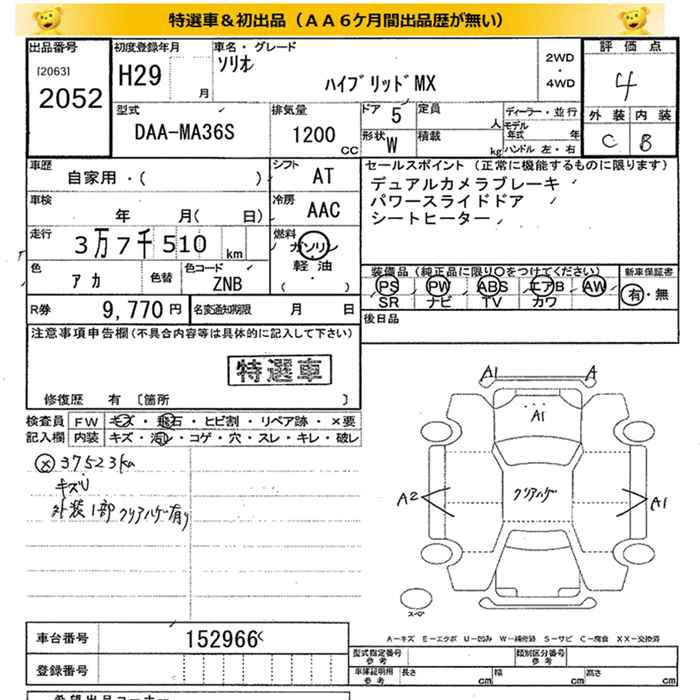 特選車＆初出品（ＡＡ６ケ月間出品歴が無い）
出品番号 初度登録年月 車名・グレード 評価点
[2063] 2052 H29 月 ソリオ ハイブリッドMX 2WD・4WD 4
型式 排気量 ドア 5 定員 人 ディーラー・並行 外装 内装
DAA-MA36S 1200 CC 形状 W 積載 kg モデル年式 年 ハンドル 左・右 C B
車歴 シフト セールスポイント（正常に機能するものに限ります）
自家用・( ) AT デュアルカメラブレーキ
車検 冷房 パワースライドドア
年 月( 日) AAC シートヒーター
走行 燃料
3万7千510 km ガソリン・軽油・( )
色 色替 色コード 装備品（純正品に限り○をつけてください） 新車保証書
アカ ZNB PS PW ABS エアB AW 有・無
SR ナビ TV カワ
R券 9,770円 名変通知期限 月 日 後日品
注意事項申告欄（不具合内容等は具体的に記入して下さい）
特選車
修復歴 有 〔箇所 〕
検査員記入欄 FW キズ・飛石・ヒビ割・リペア跡・×要
内装 キズ・汚レ・コゲ・穴・スレ・キレ・破レ
ⓧ37523km
キズU
外装1部クリアハゲ有り
A1 A
A1
A2 クリアハゲ A1
スペア
A－キズ E－エクボ U－凹み W－補修跡 S－サビ C－腐食 XX－交換済
車台番号 152966
型式指定番号 参考 類別区分番号 参考
登録番号 車庫証明用 参考 長さ cm 幅 cm 高さ cm
希望出品コーナー